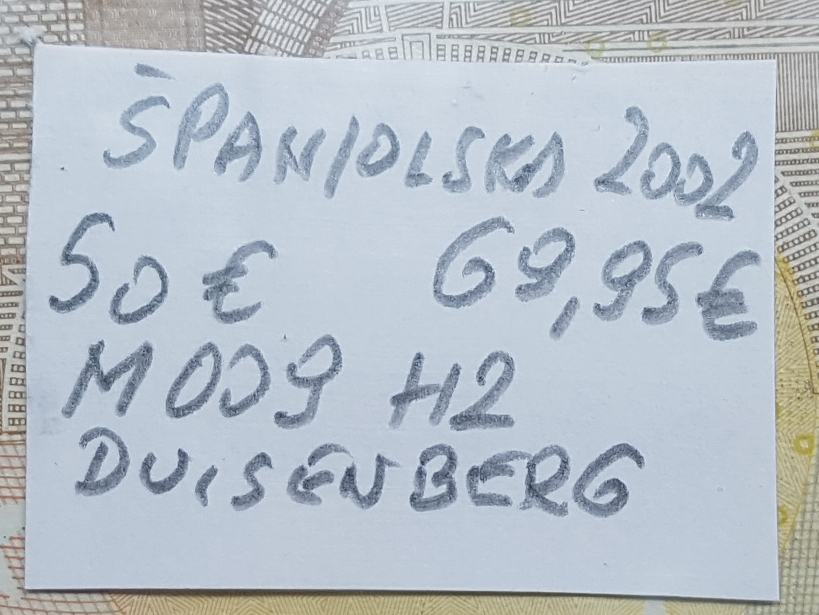 ŠPANJOLSKA 2002
50 € 69,95€
M009 H2
DUISENBERG